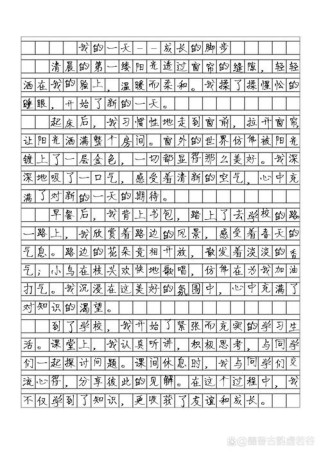 我的一天--成长的脚步
清晨的第一缕阳光透过窗帘的缝隙，轻轻
洒在我的脸上，温暖而柔和。我揉了揉惺忪的
睡眼，开始了新的一天。
起床后，我习惯性地走到窗前，拉开窗帘，
让阳光洒满整个房间。窗外的世界仿佛被阳光
镀上了一层金色，一切都显得那么美好。我深
深地吸了一口气，感受着清新的空气，心中充
满了对新的一天的期待。
早餐后，我背上书包，踏上了去学校的路
一路上，我欣赏着路边的风景，感受着春天的
气息。路边的花朵竞相开放，散发着淡淡的香
气；小鸟在枝头欢快地歌唱，仿佛在为我加油
打气。我沉浸在这美好的氛围中，心中充满了
对知识的渴望。
到了学校，我开始了紧张而充实的学习生
活。课堂上，我认真听讲，积极思考，与同学
们一起探讨问题。课间休息时，我与同学们交
流心得，分享彼此的见解。在这个过程中，我
不仅学到了知识，更收获了友谊和成长。